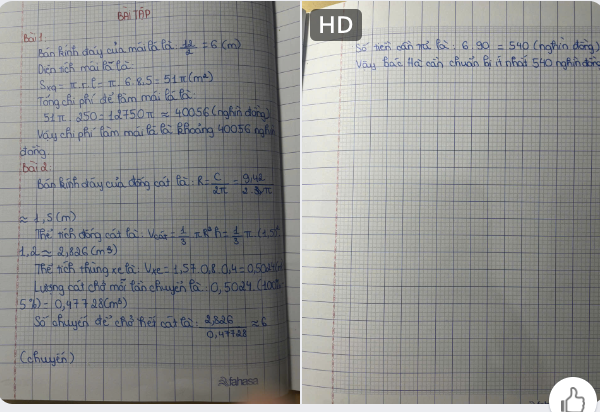 BÀI TẬP
Bài 1
Bán kính đáy của mái lá là: 12/2 = 6 (m)
Diện tích mái lá là:
Sxq = π.r.l = π.6.8,5 = 51π (m²)
Tổng chi phí để làm mái lá là
51π.250 = 12750π ≈ 40056 (nghìn đồng)
Vậy chi phí làm mái lá là khoảng 40056 nghìn
đồng.
Bài 2
Bán kính đáy của đống cát là: R = C/2π = 9,42/2.π
≈ 1,5 (m)
Thể tích đống cát là: Vcát = 1/3 πR²h = 1/3 π (1,5)².
1,2 ≈ 2,826 (m³)
Thể tích thùng xe là: Vxe = 1,57.0,8.0,4 = 0,5024 (m³)
Lượng cát chở mỗi lần chuyến là: 0,5024.(100%-
5%) = 0,47728 (m³)
Số chuyến để chở hết cát là: 2,826/0,47728 ≈ 6
(chuyến)
fahasa
HD
Số tiền cần trả là: 6.90 = 540 (nghìn đồng)
Vậy bác Hà cần chuẩn bị ít nhất 540 nghìn đồng